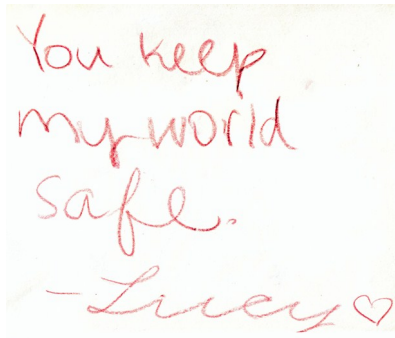 You keep
my world
safe.
-Lucy♡